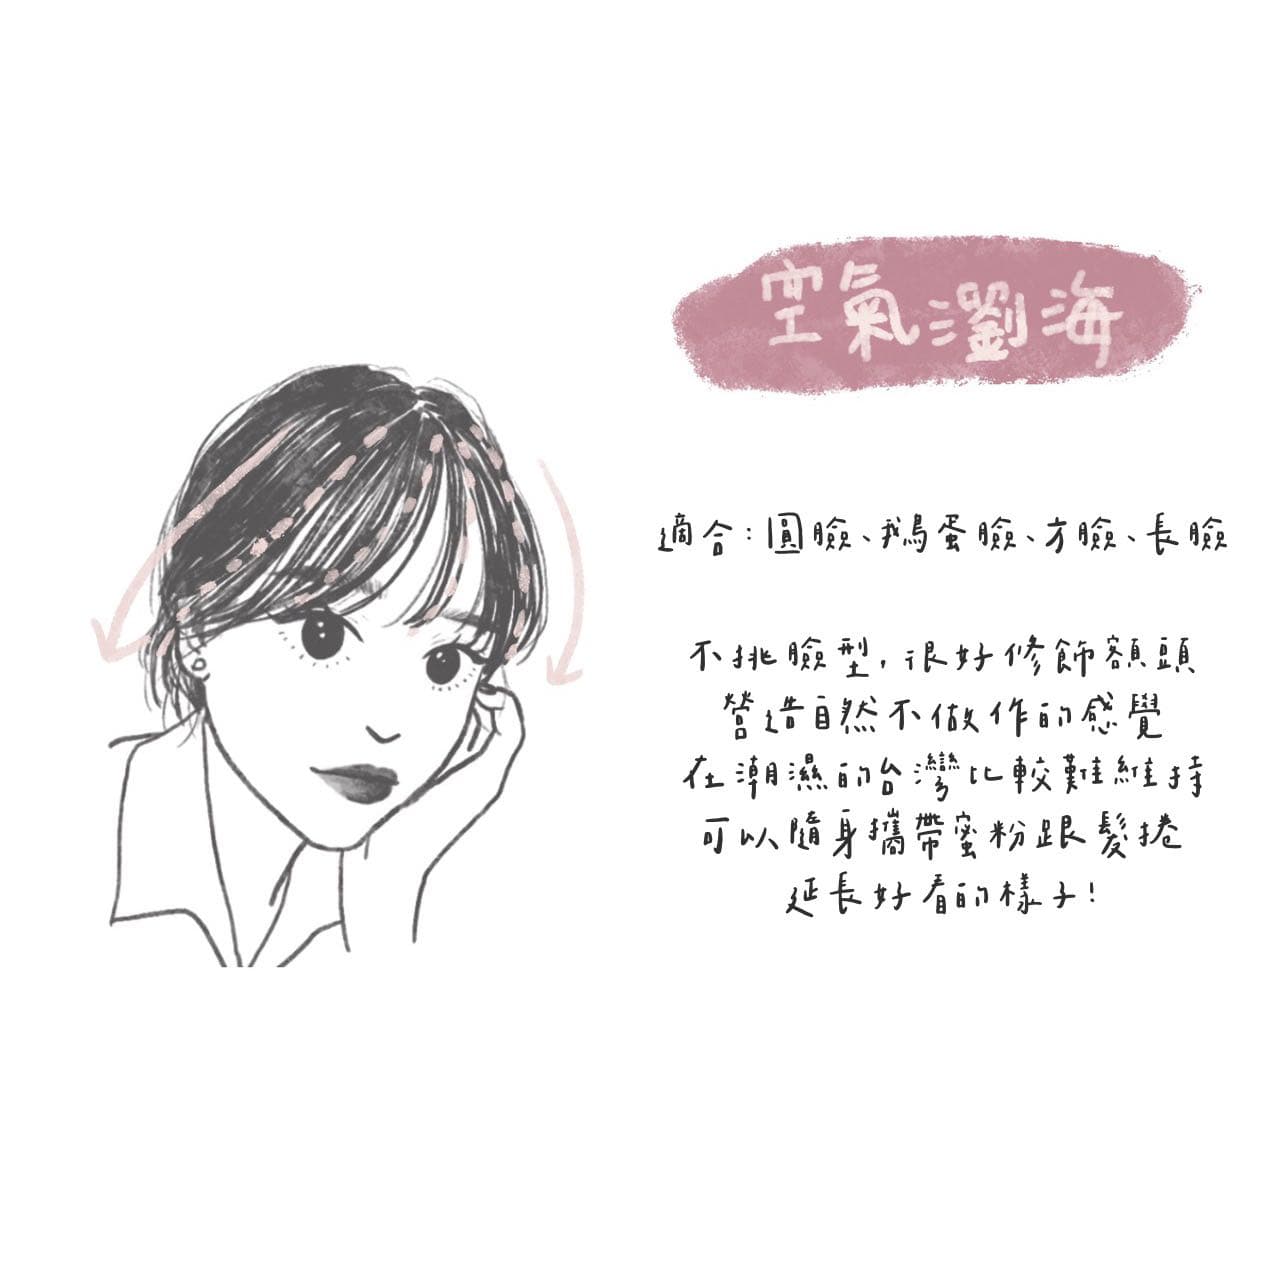 空氣瀏海
適合：圓臉、鵝蛋臉、方臉、長臉
不挑臉型，很好修飾額頭
營造自然不做作的感覺
在潮濕的台灣比較難維持
可以隨身攜帶蜜粉跟髮捲
延長好看的樣子！